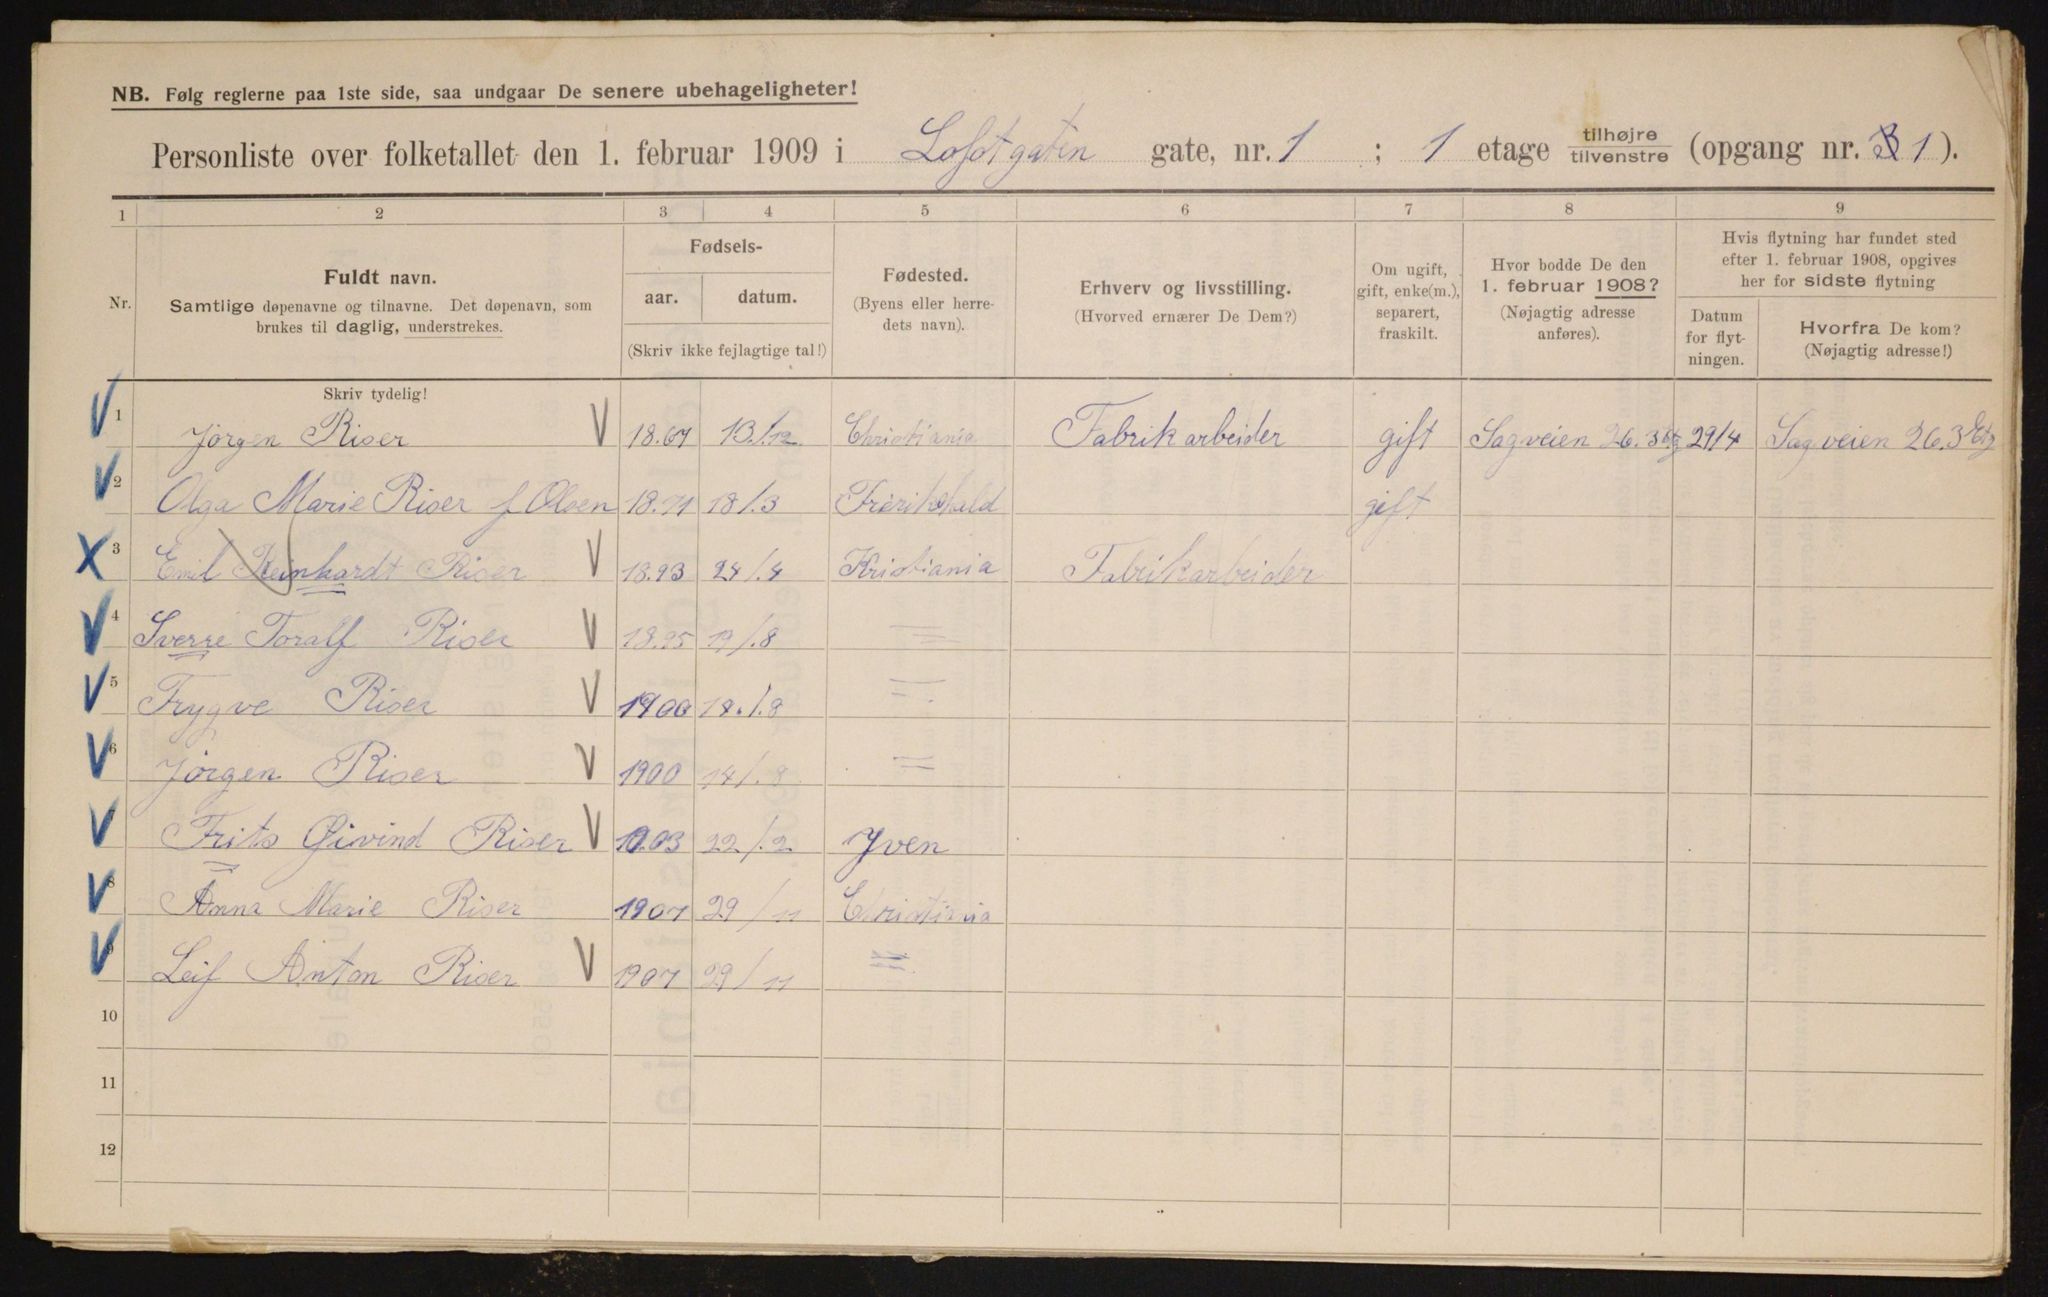 NB. Følg reglerne paa 1ste side, saa undgaar De senere ubehageligheter!
Personliste over folketallet den 1. februar 1909 i Lofotgaten gate, nr. 1 ; 1 etage tilhøjre tilvenstre (opgang nr. 1 ).
1 2 3 4 5 6 7 8 9
Nr.
Fuldt navn.
Samtlige døpenavne og tilnavne. Det døpenavn, som
brukes til daglig, understrekes.
Fødsels-
aar. datum.
(Skriv ikke fejlagtige tal!)
Fødested.
(Byens eller herre-
dets navn).
Erhverv og livsstilling.
(Hvorved ernærer De Dem?)
Om ugift,
gift, enke(m.),
separert,
fraskilt.
Hvor bodde De den
1. februar 1908?
(Nøjagtig adresse
anføres).
Hvis flytning har fundet sted
efter 1. februar 1908, opgives
her for sidste flytning
Datum
for flyt-
ningen.
Hvorfra De kom?
(Nøjagtig adresse!)
Skriv tydelig!
1 Jørgen Riser V 18.67 13/12 Christiania Fabrikarbeider gift Sagveien 26. 3 Etg 29/4 Sagveien 26. 3 Etg
2 Olga Marie Riser f Olsen 18.71 18/3 Frerikshald gift
3 Emil Reinhardt Riser V 18.93 24/4 Kristiania Fabrikarbeider
4 Sverre Toralf Riser V 18.95 19/8 =
5 Trygve Riser V 1900 18/8 =
6 Jørgen Riser V 1900 14/8 =
Frits Øivind Riser V 1903 22/2 Yven
8 Anna Marie Riser 1907 29/11 Christiania
9 Leif Anton Riser V 1907 29/11 =
10
11
12